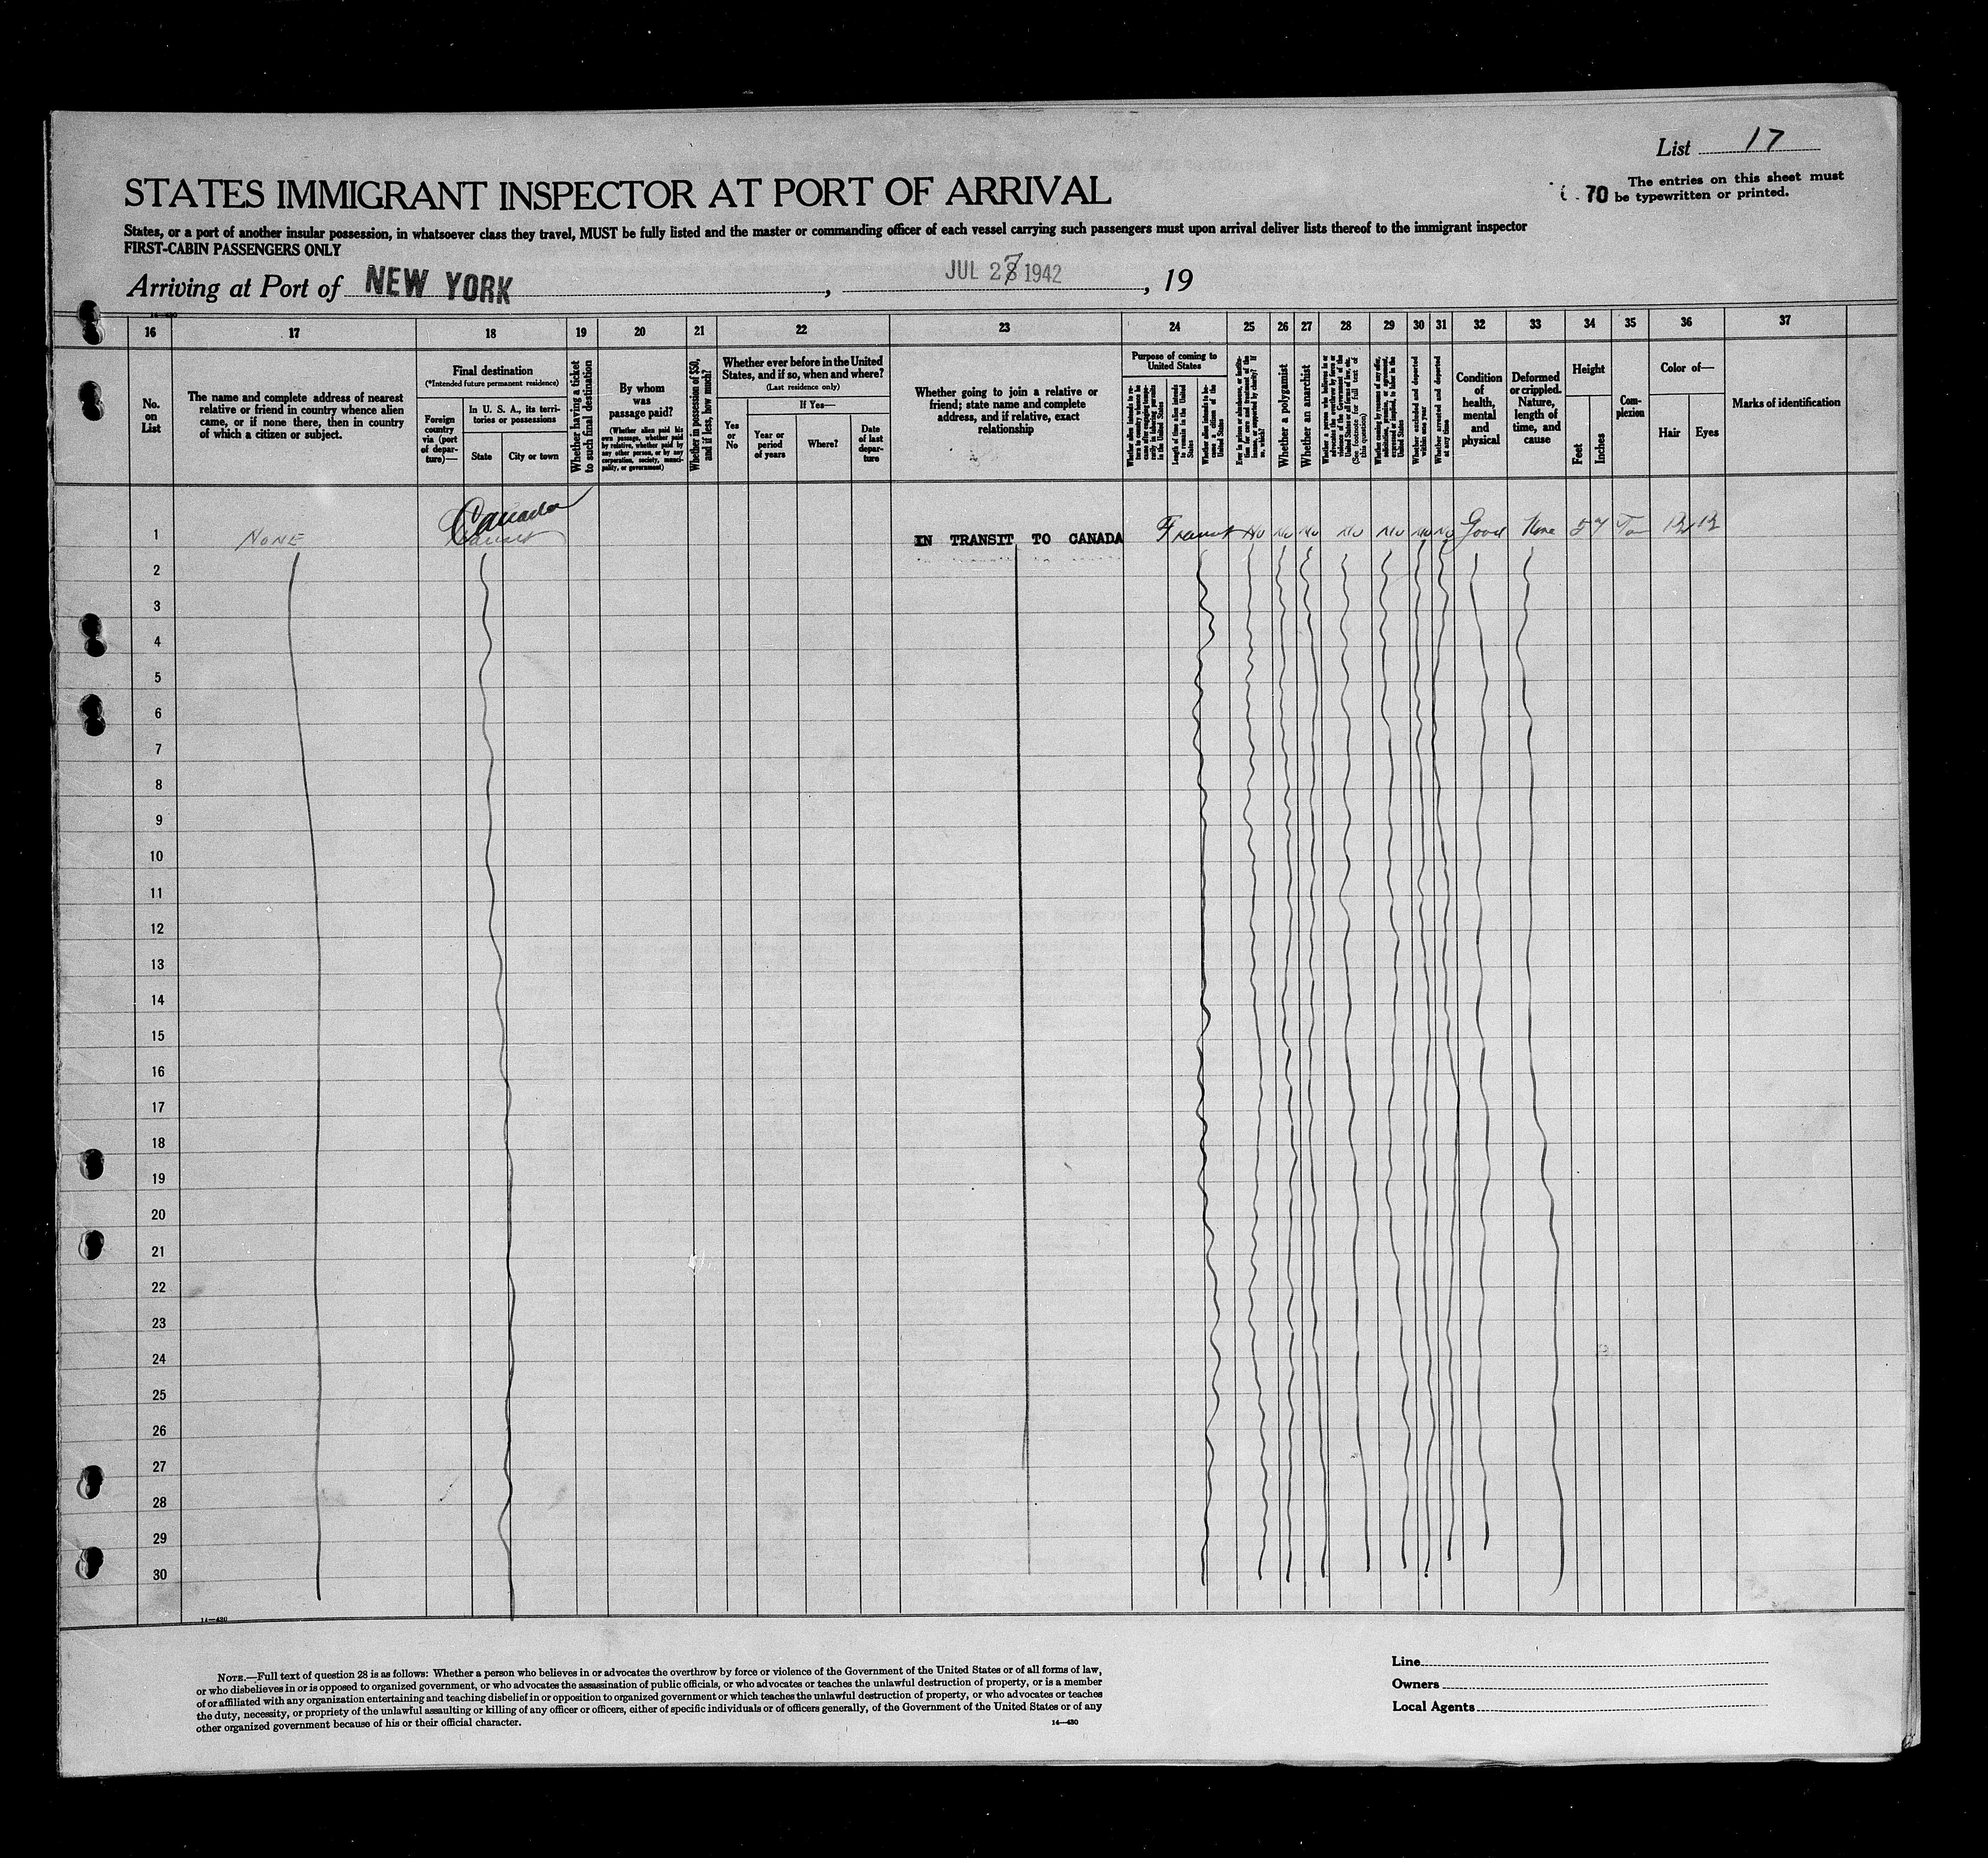 List 17
STATES IMMIGRANT INSPECTOR AT PORT OF ARRIVAL
70
The entries on this sheet must
be typewritten or printed.
States, or a port of another insular possession, in whatsoever class they travel, MUST be fully listed and the master or commanding officer of each vessel carrying such passengers must upon arrival deliver lists thereof to the immigrant inspector
FIRST-CABIN PASSENGERS ONLY
Arriving at Port of NEW YORK, JUL 27 1942, 19
14—430
16 17 18 19 20 21 22 23 24 25 26 27 28 29 30 31 32 33 34 35 36 37
No.
on
List
The name and complete address of nearest
relative or friend in country whence alien
came, or if none there, then in country
of which a citizen or subject.
Final destination
(*Intended future permanent residence)
Foreign
country
via (port
of depar-
ture)—
In U. S. A., its terri-
tories or possessions
State
City or town
Whether having a ticket
to such final destination
By whom
was
passage paid?
(Whether alien paid his
own passage, whether paid
by relative, whether paid by
any other person, or by any
corporation, society, munici-
pality, or government)
Whether in possession of $50,
and if less, how much?
Whether ever before in the United
States, and if so, when and where?
(Last residence only)
Yes
or
No
If Yes—
Year or
period
of years
Where?
Date
of last
depar-
ture
Whether going to join a relative or
friend; state name and complete
address, and if relative, exact
relationship
Purpose of coming to
United States
Length of time alien intends
to remain in the United
States
Whether alien intends to be-
come a citizen of the
United States
Whether a polygamist
Whether an anarchist
(See footnote for full text of
this question)
Whether arrested and deported
at any time
Condition
of
health,
mental
and
physical
Deformed
or crippled.
Nature,
length of
time, and
cause
Height
Feet
Inches
Com-
plexion
Color of—
Hair
Eyes
Marks of identification
Canada
1 NONE IN TRANSIT TO CANADA Transit No No No No No No No Good None 5 7
2
3
4
5
6
7
8
9
10
11
12
13
14
15
16
17
18
19
20
21
22
23
24
25
26
27
28
29
30
14—430
NOTE.—Full text of question 28 is as follows: Whether a person who believes in or advocates the overthrow by force or violence of the Government of the United States or of all forms of law,
or who disbelieves in or is opposed to organized government, or who advocates the assassination of public officials, or who advocates or teaches the unlawful destruction of property, or is a member
of or affiliated with any organization entertaining and teaching disbelief in or opposition to organized government or which teaches the unlawful destruction of property, or who advocates or teaches
the duty, necessity, or propriety of the unlawful assaulting or killing of any officer or officers, either of specific individuals or of officers generally, of the Government of the United States or of any
other organized government because of his or their official character.
14—430
Line
Owners
Local Agents